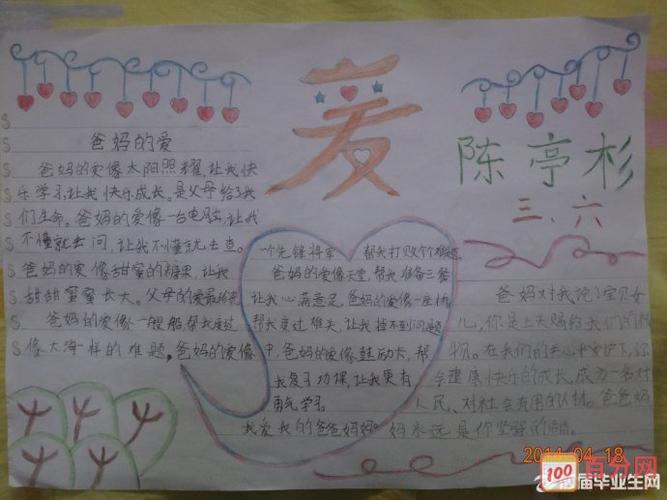 爱
陈亭杉
三、六
爸妈的爱
爸妈的爱像太阳照耀,让我快
乐学习,让我快乐成长。是父母给了我
们生命。爸妈的爱像一台电脑,让我
不懂就去问,让我不懂就去查。
爸妈的爱像甜蜜的糖果,让我
甜甜蜜蜜长大。父母的爱最
爸妈的爱像一般船,帮我度过
像大海一样的难题。爸妈的爱像
一个先锋将军 帮我打败个个难题
爸妈的爱像天堂,帮我准备三餐
让我心满意足,爸妈的爱像一座桥
帮我度过难关,让我 不到问题
中,爸妈的爱像鼓励大,帮
我复习功课,让我更有
勇气学习。
我爱我的爸爸妈妈。
爸妈对我说:宝贝女
儿,你是上天赐给我们的礼
物。在我们的关心爱护下,你
会健康快乐的成长,成为一名对
人民、对社会有用的人材。爸爸妈
妈永远是你坚强的
2014-04-18
100
百分网
届毕业生网